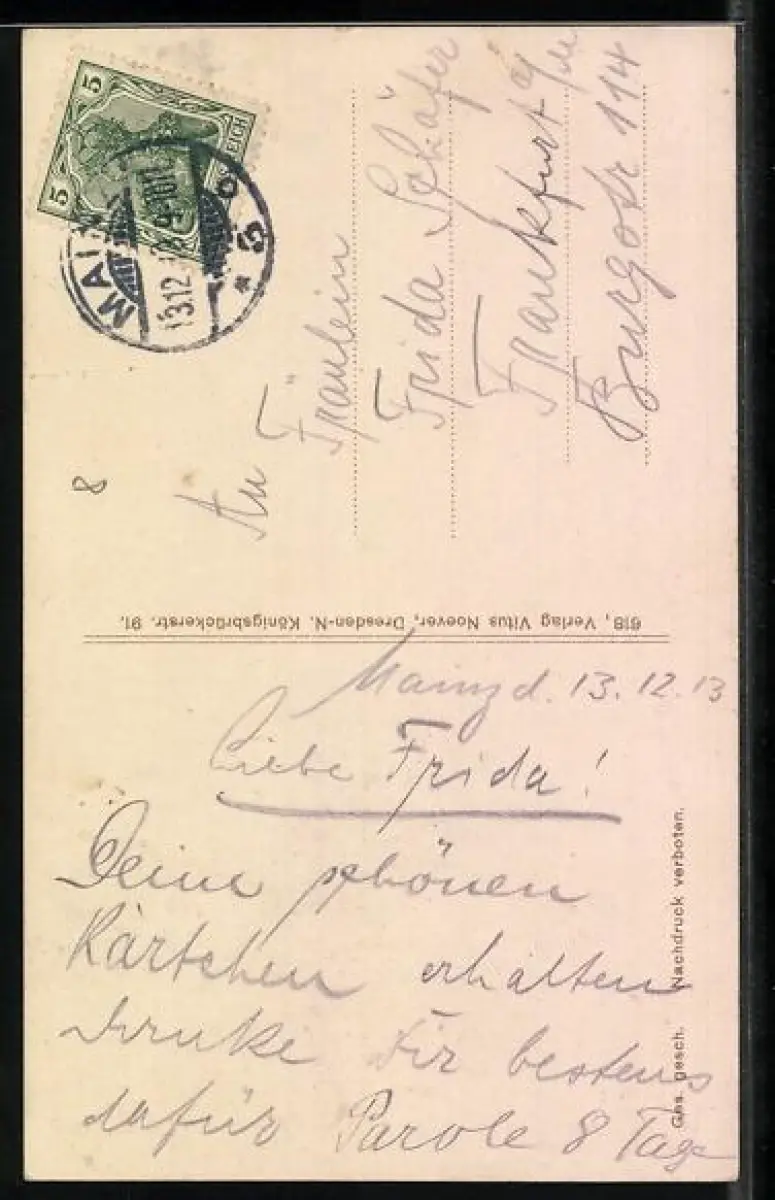 5 5
REICH
MAINZ
13.12.13 9-10V
* 5 *
An
Fräulein
Frida Schäfer
Frankfurt a/M
Burgstr 114
8
618, Verlag Vitus Noever, Dresden-N. Königsbrückerstr. 91.
Mainz d. 13.12.13
Liebe Frida!
Deine schönen
Kärtchen erhalten
danke Dir bestens
dafür Parole 8 Tage
Ges. gesch. Nachdruck verboten.